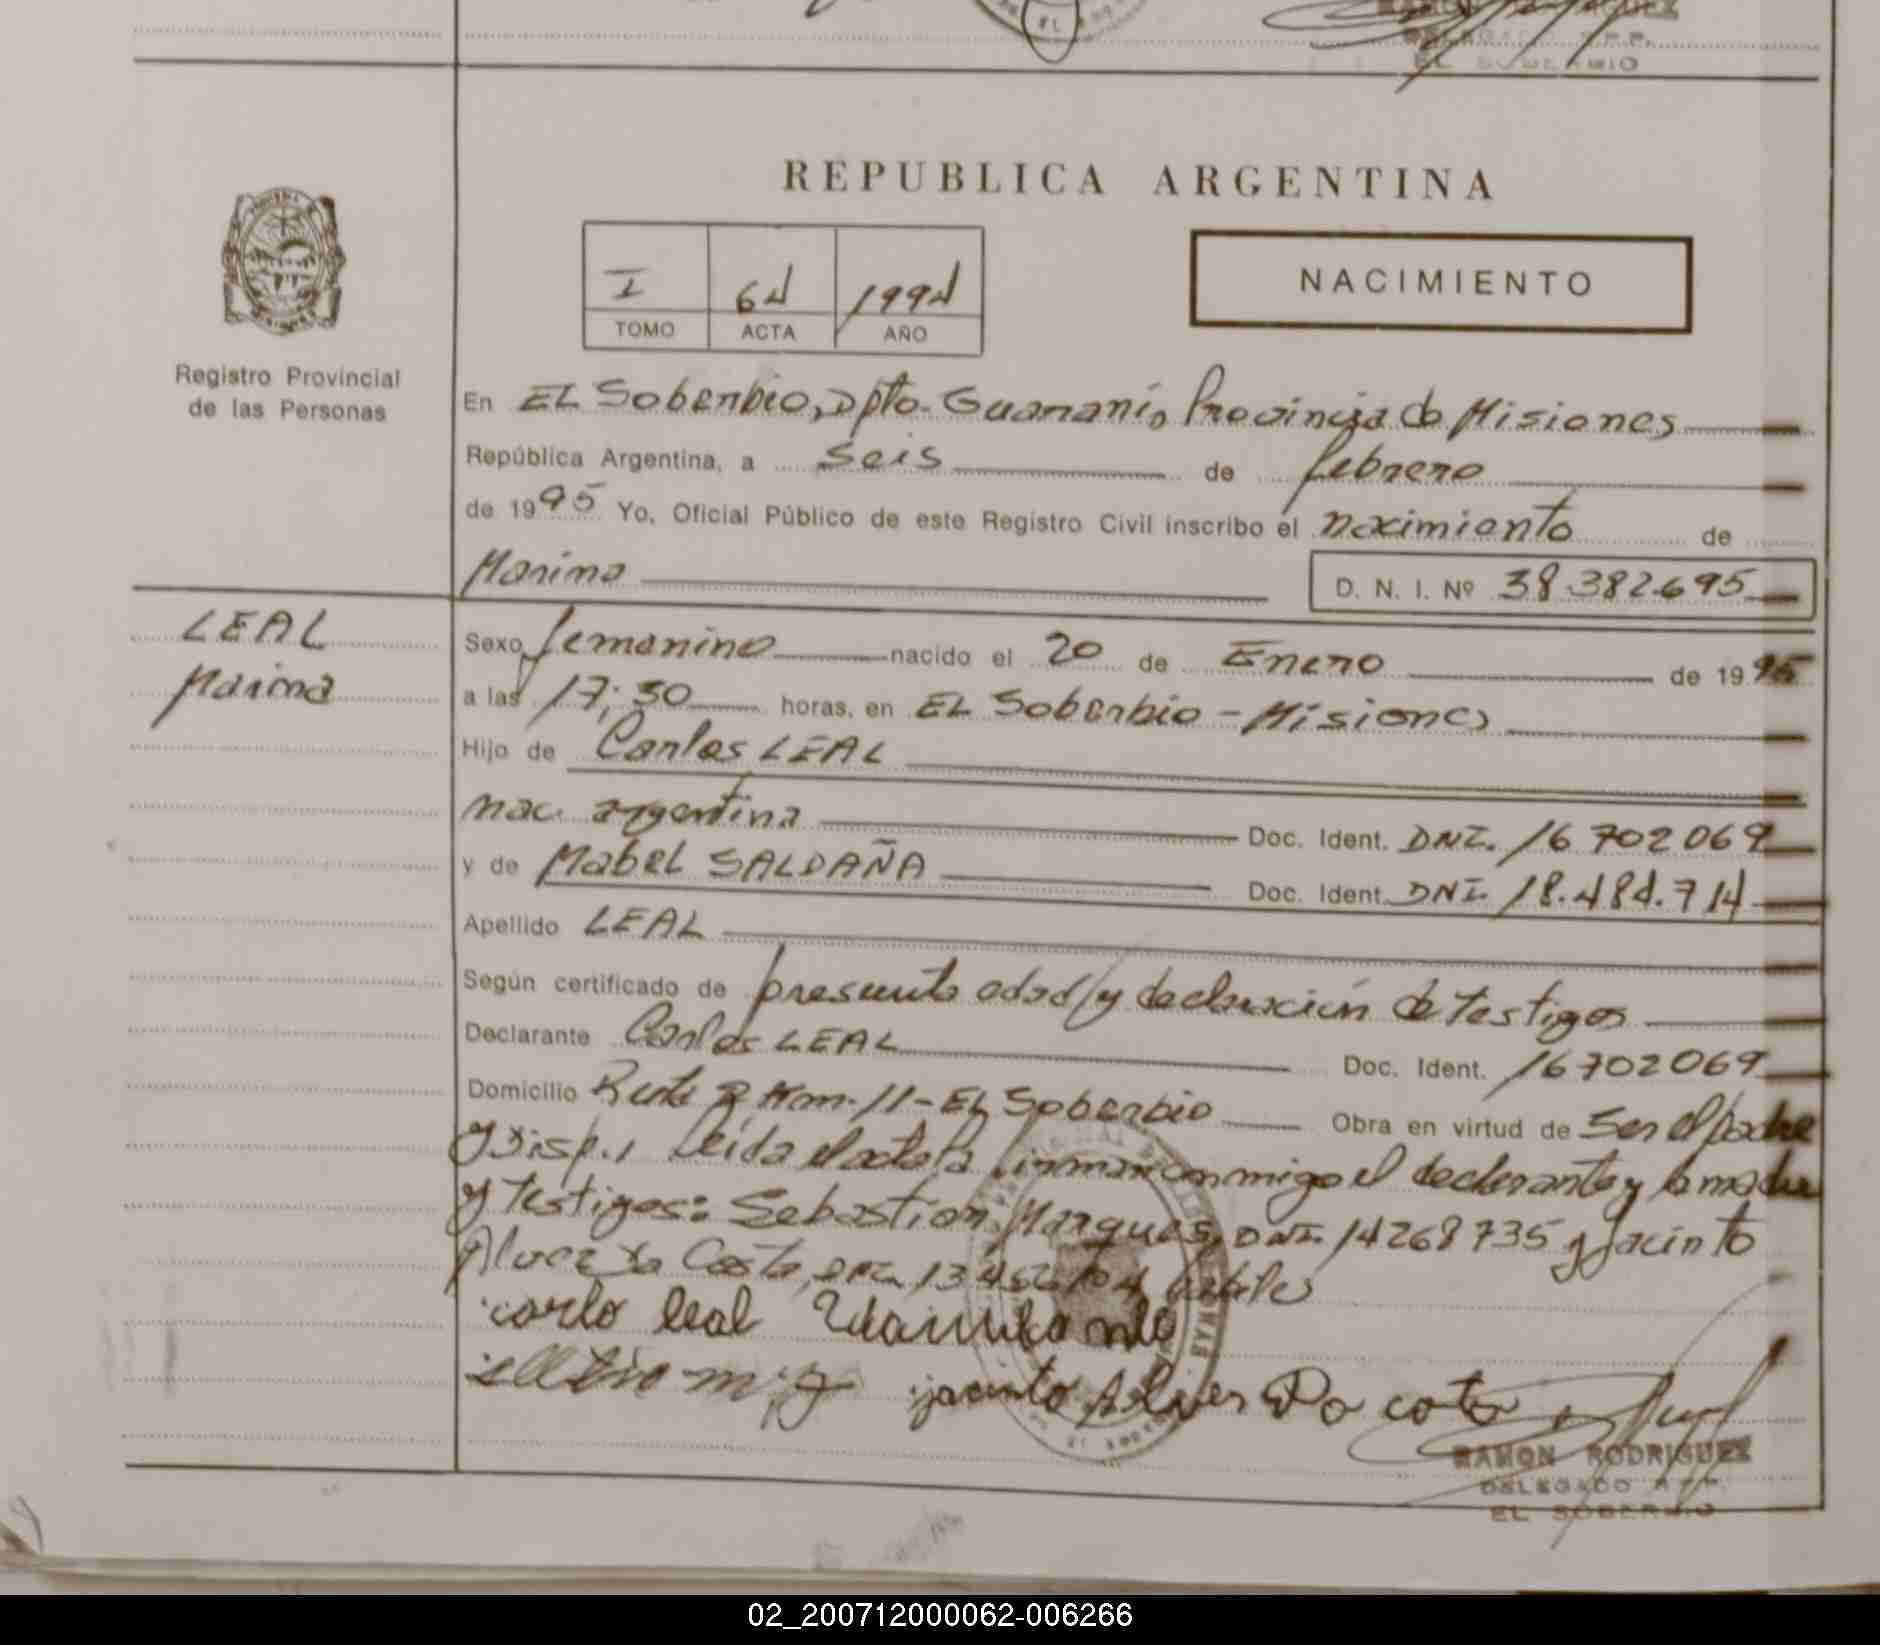 RAMON RODRIGUEZ
DELEGADO R.P.P.
EL SOBERBIO
REPUBLICA ARGENTINA
NACIMIENTO
I 64 1994
TOMO ACTA AÑO
Registro Provincial
de las Personas
En EL Soberbio, Dpto. Guaraní, Provincia de Misiones
República Argentina, a seis de febrero
de 1995 Yo, Oficial Público de este Registro Civil inscribo el nacimiento de
Marina D. N. I. Nº 38.382.695
LEAL
Marina
Sexo femenino nacido el 20 de Enero de 1995
a las 17:30 horas, en EL Soberbio - Misiones
Hijo de Carlos LEAL
nac. argentina Doc. Ident. DNI. 16 702 069
y de Mabel SALDAÑA Doc. Ident. DNI. 18.484.714
Apellido LEAL
Según certificado de presunta edad y declaración de testigos
Declarante Carlos LEAL Doc. Ident. 16702069
Domicilio Ruta 2 Km. 11 - EL Soberbio Obra en virtud de Ser el padre
y Disp., Leída el acta la firman conmigo el declarante y la madre
y testigos: Sebastian Marques, DNI. 14268735 y Jacinto
Alvez Da Costa, DNI. habiles
carlo leal
jacinto Alves Da cota
RAMON RODRIGUEZ
DELEGADO R.P.P.
EL SOBERBIO
02_200712000062-006266